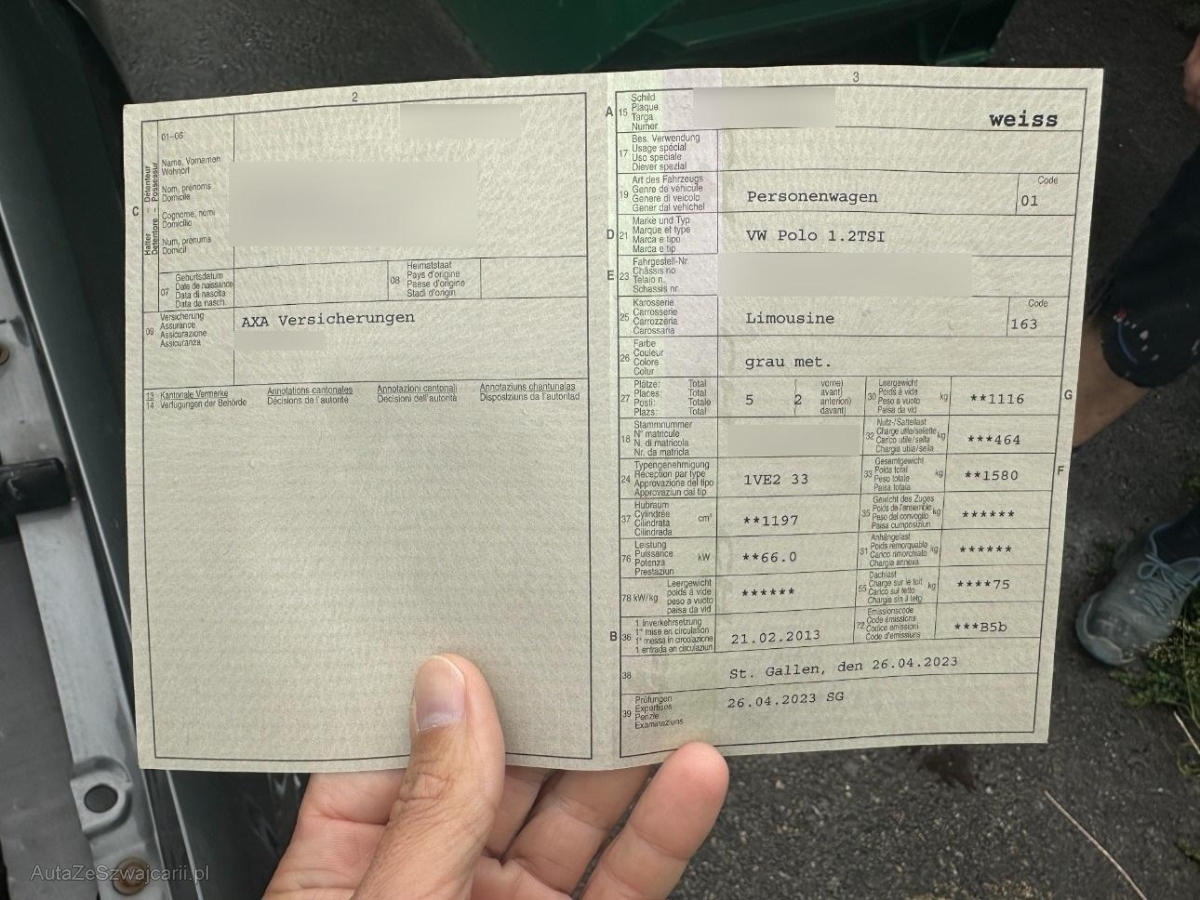 2
01-06
Name, Vornamen
Wohnort
Nom, prénoms
Domicile
Cognome, nomi
Domicilio
Num, prenums
Domicil
C
Halter Détenteur
Detentore Possessur
07
Geburtsdatum
Date de naissance
Data di nascita
Data da nasch.
08
Heimatstaat
Pays d'origine
Paese d'origine
Stadi d'origin
09
Versicherung
Assurance
Assicurazione
Assicuranza
AXA Versicherungen
13 Kantonale Vermerke Annotations cantonales Annotazioni cantonali Annotaziuns chantunalas
14 Verfügungen der Behörde Décisions de l'autorité Decisioni dell'autorità Disposiziuns da l'autoritad
3
A 15
Schild
Plaque
Targa
Numer
weiss
17
Bes. Verwendung
Usage spécial
Uso speciale
Diever spezial
19
Art des Fahrzeugs
Genre de véhicule
Genere di veicolo
Gener dal vehichel
Personenwagen
Code
01
D 21
Marke und Typ
Marque et type
Marca e tipo
Marca e tip
VW Polo 1.2TSI
E 23
Fahrgestell-Nr.
Châssis no
Telaio n.
Schassis nr.
25
Karosserie
Carrosserie
Carrozzeria
Carossaria
Limousine
Code
163
26
Farbe
Couleur
Colore
Colur
grau met.
27
Plätze: Total
Places: Total
Posti: Totale
Plazs: Total
5
2
vorne)
avant)
anteriori)
davant)
30
Leergewicht
Poids à vide
Peso a vuoto
Paisa da vid
kg
**1116
G
18
Stammnummer
N° matricule
N. di matricola
Nr. da matricla
32
Nutz-/Sattellast
Charge utile/sellette
Carico utile/sella
Chargia utila/sella
kg
***464
24
Typengenehmigung
Réception par type
Approvazione del tipo
Approvaziun dal tip
1VE2 33
33
Gesamtgewicht
Poids total
Peso totale
Paisa totala
kg
**1580
F
37
Hubraum
Cylindrée
Cilindrata
Cilindrada
cm³
**1197
35
Gewicht des Zuges
Poids de l'ensemble
Peso del convoglio
Paisa cumposiziun
kg
******
76
Leistung
Puissance
Potenza
Prestaziun
kW
**66.0
31
Anhängelast
Poids remorquable
Carico rimorchiato
Chargia annexa
kg
******
78 kW/kg
Leergewicht
poids à vide
peso a vuoto
paisa da vid
******
55
Dachlast
Charge sur le toit
Carico sul tetto
Chargia sin il tetg
kg
****75
B 36
1 Inverkehrsetzung
1re mise en circulation
1a messa in circolazione
1 entrada en circulaziun
21.02.2013
72
Emissionscode
Code émissions
Codice emissioni
Code d'emissiuns
***B5b
38
St. Gallen, den 26.04.2023
39
Prüfungen
Expertises
Perizie
Examinaziuns
26.04.2023 SG
AutaZeSzwajcarii.pl